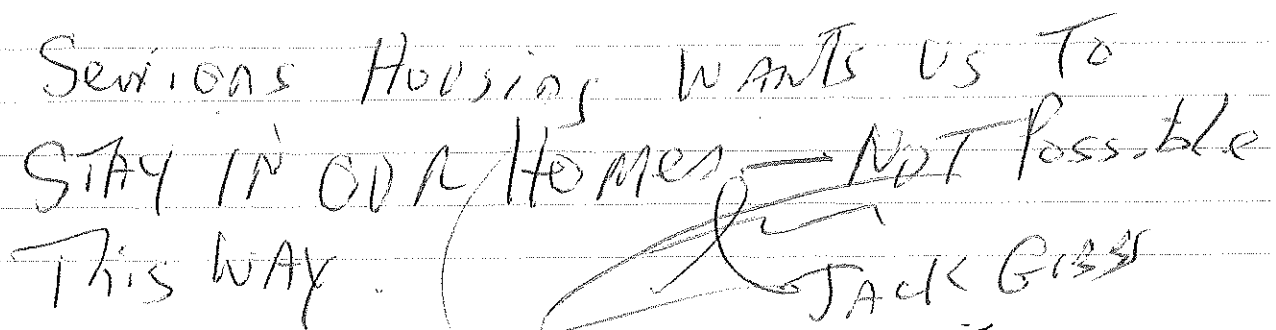 Seniors Housing WANTS US TO
STAY IN OUR HOMES — NOT Possible
This WAY.
JACK GIBBS